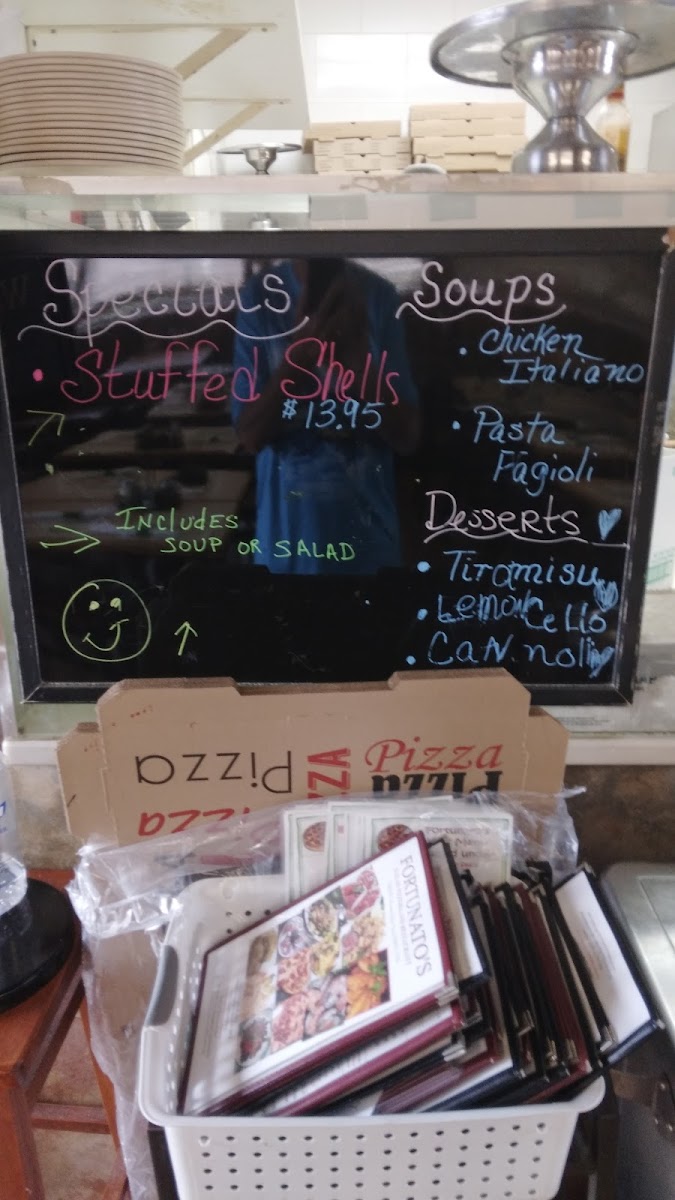 Specials
• Stuffed Shells
$13.95
INCLUDES
SOUP OR SALAD
Soups
• Chicken
Italiano
• Pasta
Fagioli
Desserts
• Tiramisu
• Lemon Cello
• CaN.noli
Pizza
Pizza
Pizza
Pizza
PIZZA
Pizza
FORTUNATO'S